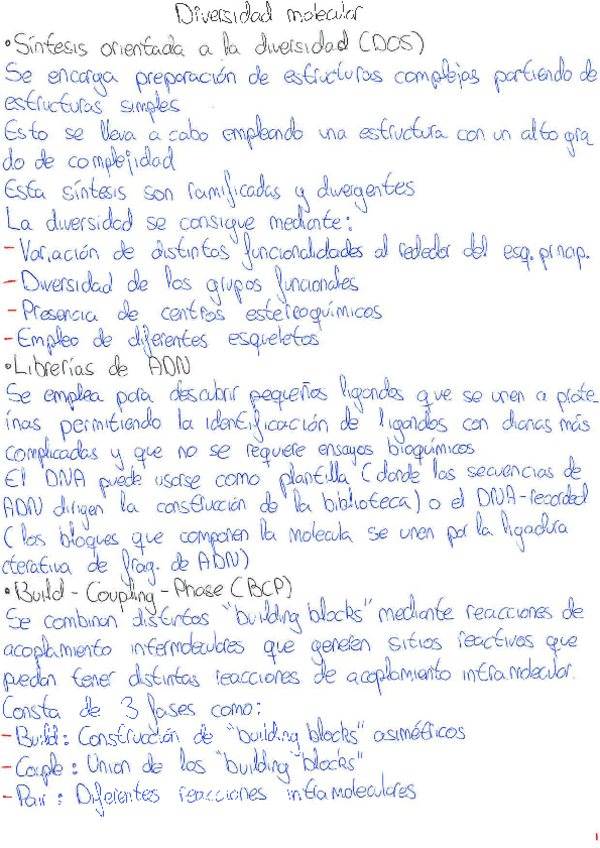 Diversidad molecular
•Síntesis orientada a la diversidad (DOS)
Se encarga preparación de estructuras complejas partiendo de
estructuras simples
Esto se lleva a cabo empleando una estructura con un alto gra
do de complejidad
Esta síntesis son ramificadas y divergentes
La diversidad se consigue mediante:
-Variación de distintas funcionalidades al rededor del esq. princp.
-Diversidad de los grupos funcionales
-Presencia de centros estereoquímicos
-Empleo de diferentes esqueletos
•Librerías de ADN
Se emplea para descubrir pequeños ligandos que se unen a prote
ínas permitiendo la identificación de ligandos con dianas más
complicadas y que no se requiere ensayos bioquímicos
El DNA puede usarse como plantilla (donde las secuencias de
ADN dirigen la construcción de la biblioteca) o el DNA-recorded
(los bloques que componen la molecula se unen por la ligadura
iterativa de frag. de ADN)
•Build-Coupling-Phase (BCP)
Se combinan distintos "building blocks" mediante reacciones de
acoplamiento intermoleculares que generen sitios reactivos que
puedan tener distintas reacciones de acoplamiento intramolecular.
Consta de 3 fases como:
-Build: Construcción de "building blocks" asimétricos
-Couple: Unión de los "building blocks"
-Pair: Diferentes reacciones intramoleculares
1